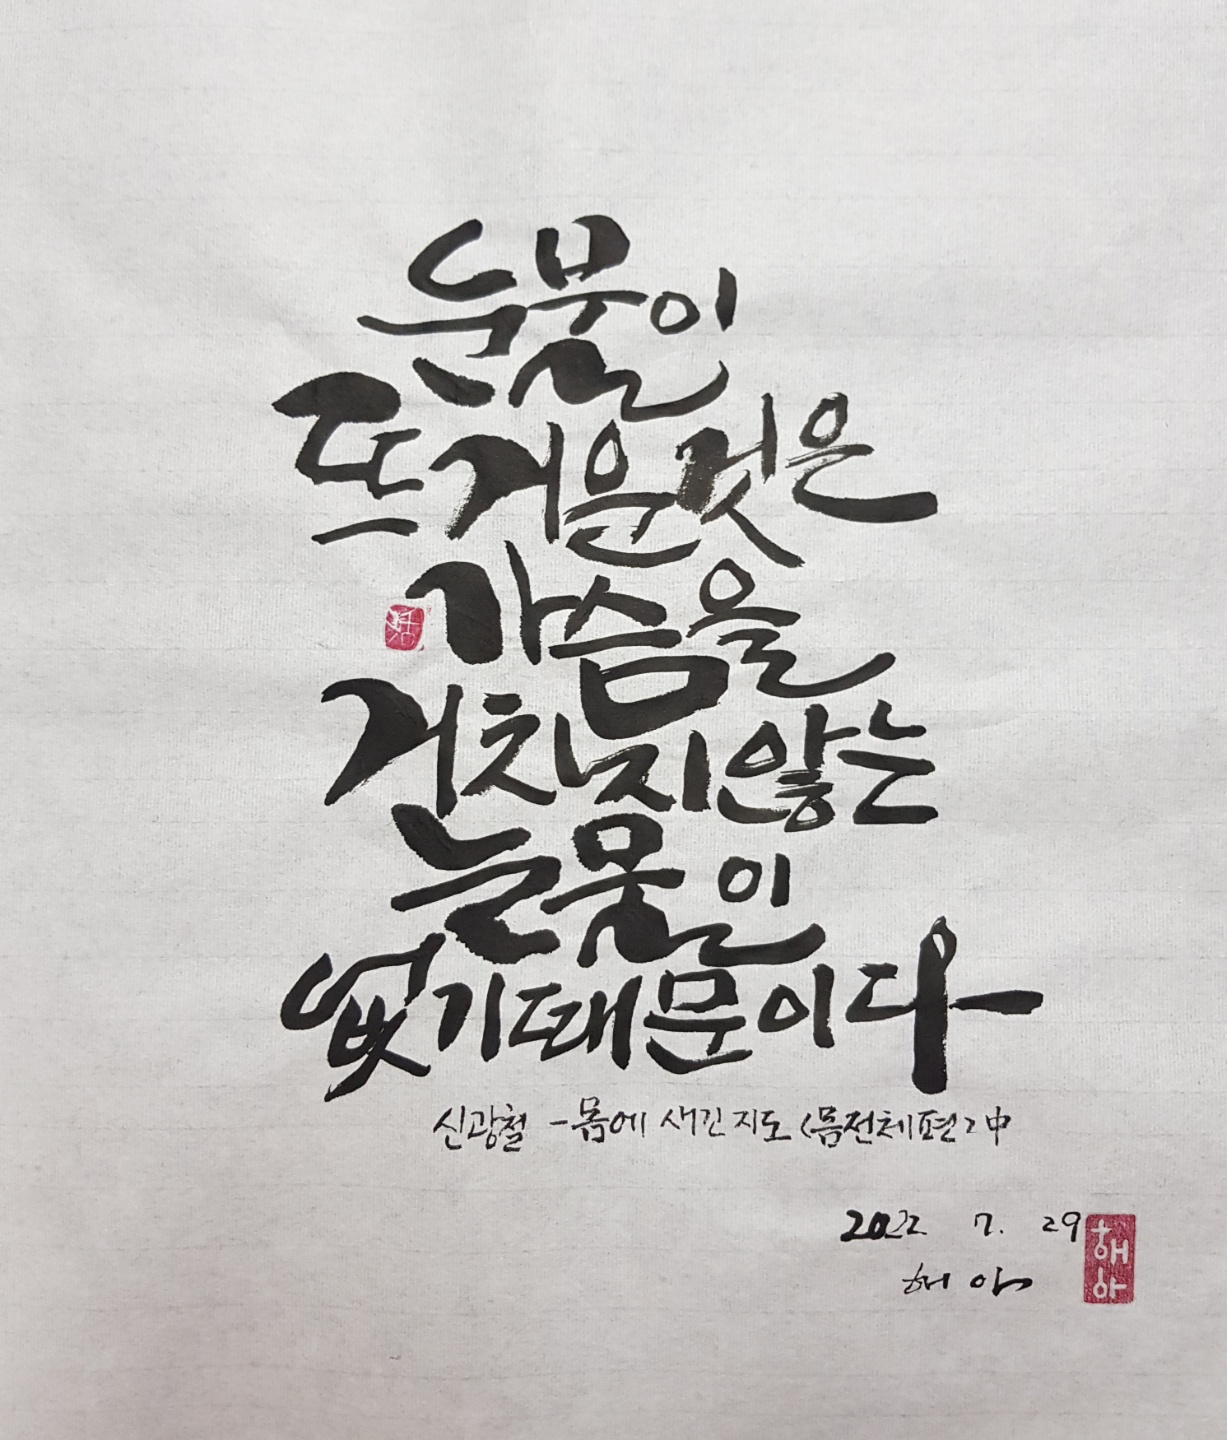 눈물이
뜨거운 것은
가슴을
거치지 않는
눈물이
없기 때문이다
신광철 - 몸에 새긴 지도 <몸전체편> 中
2022. 7. 29
해아
해아